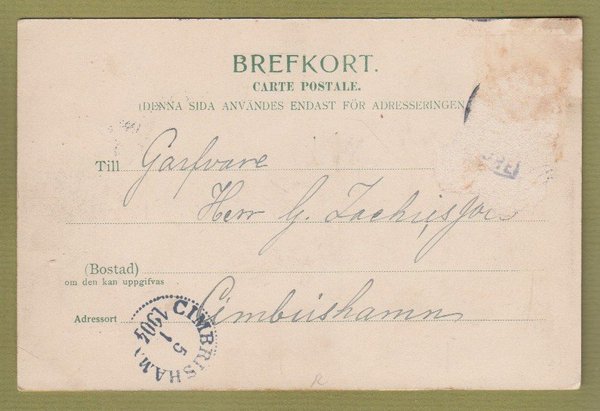 BREFKORT.
CARTE POSTALE.
(DENNA SIDA ANVÄNDES ENDAST FÖR ADRESSERINGEN
Till Garfvare
Herr G. Zachrisson
(Bostad)
om den kan uppgifvas
Adressort Cimbrishamn
CIMBRISHAMN
5 1
1904